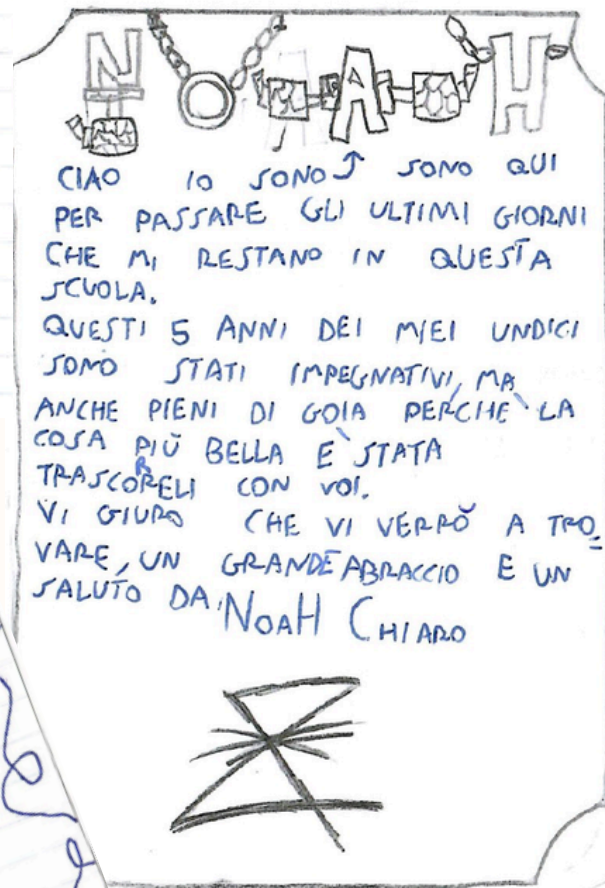 NOAH
CIAO IO SONO SONO QUI
PER PASSARE GLI ULTIMI GIORNI
CHE MI RESTANO IN QUESTA
SCUOLA.
QUESTI 5 ANNI DEI MIEI UNDICI
SONO STATI IMPEGNATIVI, MA
ANCHE PIENI DI GOIA PERCHÈ LA
COSA PIÙ BELLA È STATA
TRASCORRELI CON VOI.
VI GIURO CHE VI VERRÒ A TRO=
VARE, UN GRANDE ABRACCIO E UN
SALUTO DA: NOAH CHIARO